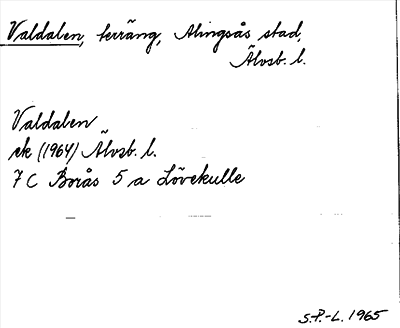 Valdalen, terräng, Alingsås stad,
Älvsb. l.
Valdalen
ek (1964) Älvsb. l.
7 C Borås 5 a Lövekulle
S.P.-L. 1965